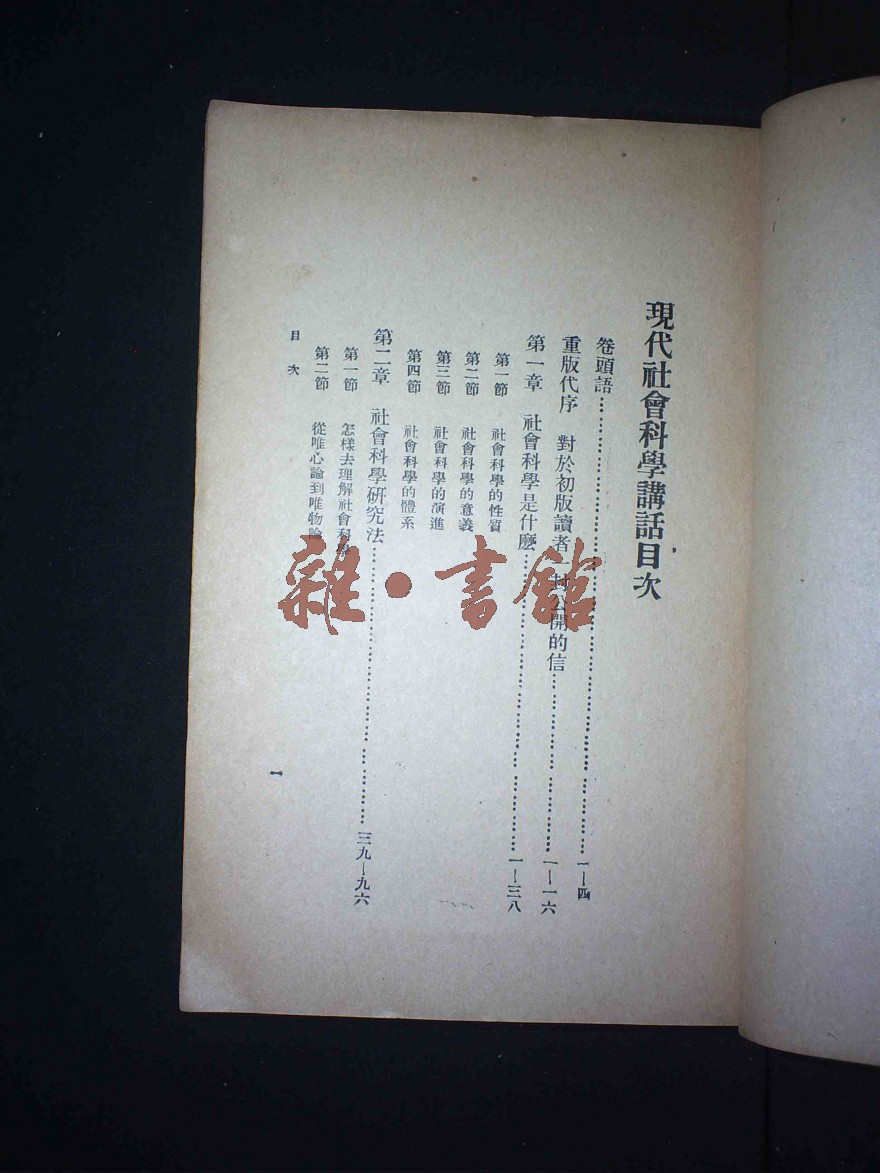 現代社會科學講話目次
卷頭語……一—四
重版代序 對於初版讀者一封公開的信……一—一六
第一章 社會科學是什麼……一—三八
第一節 社會科學的性質
第二節 社會科學的意義
第三節 社會科學的演進
第四節 社會科學的體系
第二章 社會科學研究法……三九—九六
第一節 怎樣去理解社會科學
第二節 從唯心論到唯物論
目次
一
雜·書館